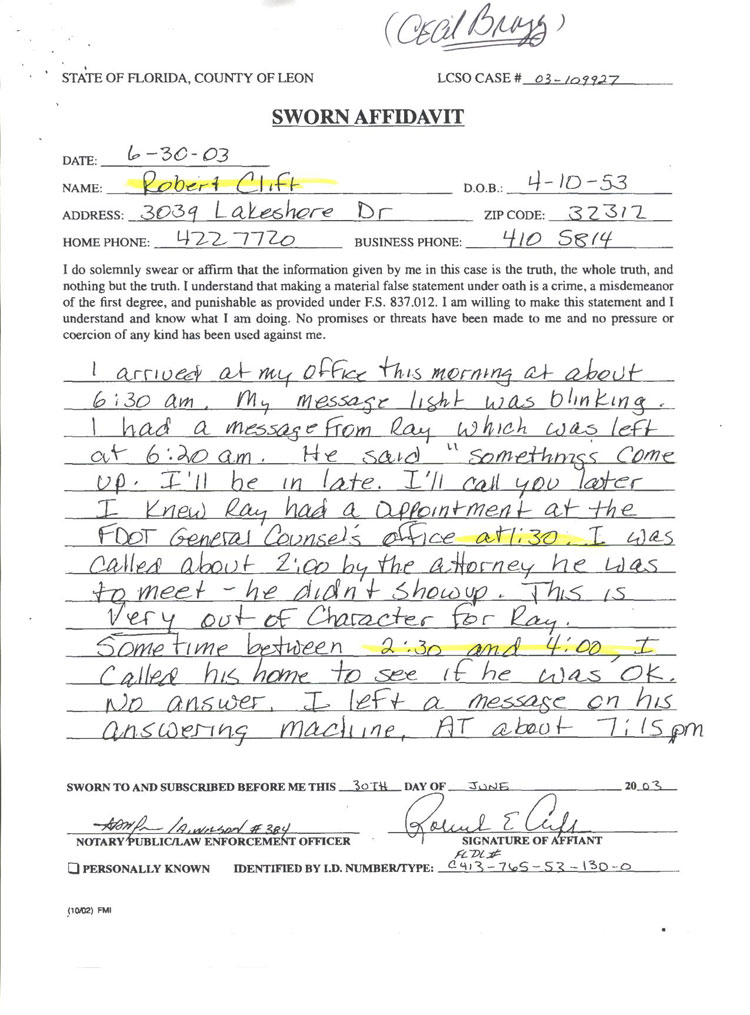 (Cecil Bragg)
STATE OF FLORIDA, COUNTY OF LEON LCSO CASE # 03-109927
SWORN AFFIDAVIT
DATE: 6-30-03
NAME: Robert Clift D.O.B.: 4-10-53
ADDRESS: 3039 Lakeshore Dr ZIP CODE: 32312
HOME PHONE: 422 7720 BUSINESS PHONE: 410 5814
I do solemnly swear or affirm that the information given by me in this case is the truth, the whole truth, and
nothing but the truth. I understand that making a material false statement under oath is a crime, a misdemeanor
of the first degree, and punishable as provided under F.S. 837.012. I am willing to make this statement and I
understand and know what I am doing. No promises or threats have been made to me and no pressure or
coercion of any kind has been used against me.
I arrived at my office this morning at about
6:30 am. My message light was blinking.
I had a message from Ray which was left
at 6:20 am. He said "somethings come
up. I'll be in late. I'll call you later
I knew Ray had a appointment at the
FDOT General Counsel's office at 1:30. I was
called about 2:00 by the attorney he was
to meet - he didn't showup. This is
very out of character for Ray.
Sometime between 2:30 and 4:00, I
called his home to see if he was OK.
No answer. I left a message on his
answering machine. AT about 7:15 pm
SWORN TO AND SUBSCRIBED BEFORE ME THIS 30TH DAY OF JUNE 2003
/A. WILSON # 384 Robert E Clift
NOTARY PUBLIC/LAW ENFORCEMENT OFFICER SIGNATURE OF AFFIANT
FLDL#
PERSONALLY KNOWN IDENTIFIED BY I.D. NUMBER/TYPE: C413-765-53-130-0
(10/02) FMI